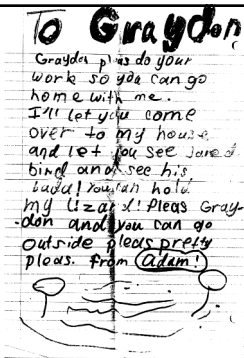 To Graydon
Graydon pleas do your
work so you can go
home with me.
I'll let you come
over to my house
and let you see Jared
bird and see his
You can hold
my lizard! Pleas Gray-
-don and you can go
outside pleas pretty
pleas. from Adam!